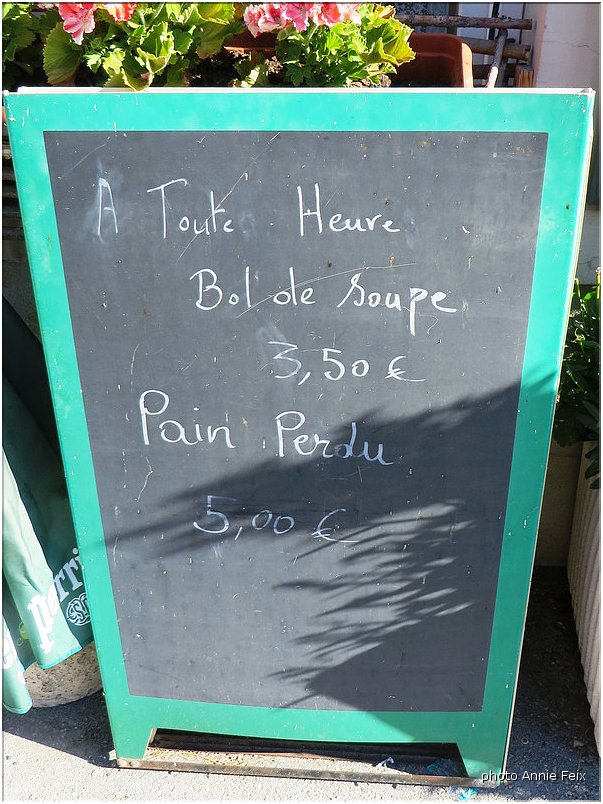 A Toute Heure
Bol de soupe
3,50 €
Pain Perdu
5,00 €
perri
photo Annie Feix